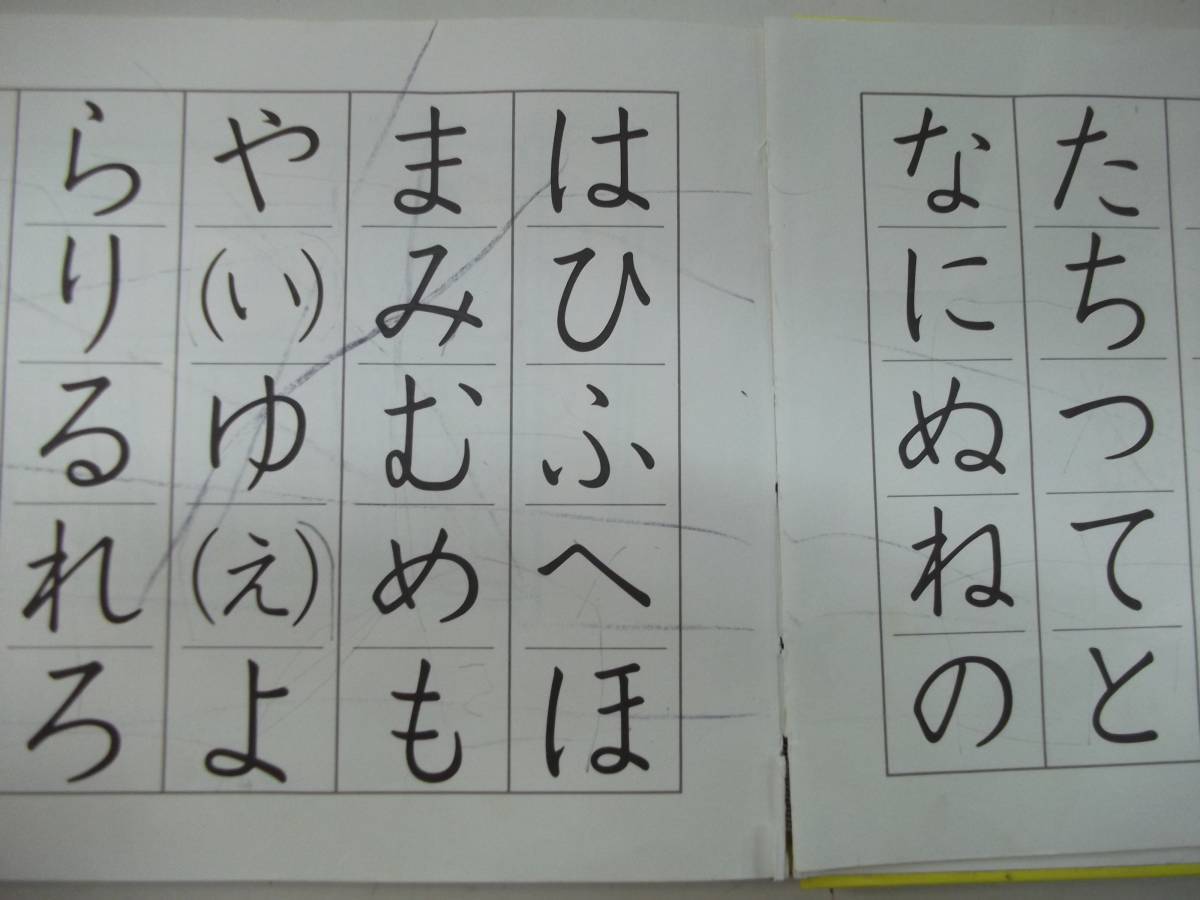 たちつてと
なにぬねの
はひふへほ
まみむめも
や(い)ゆ(え)よ
らりるれろ